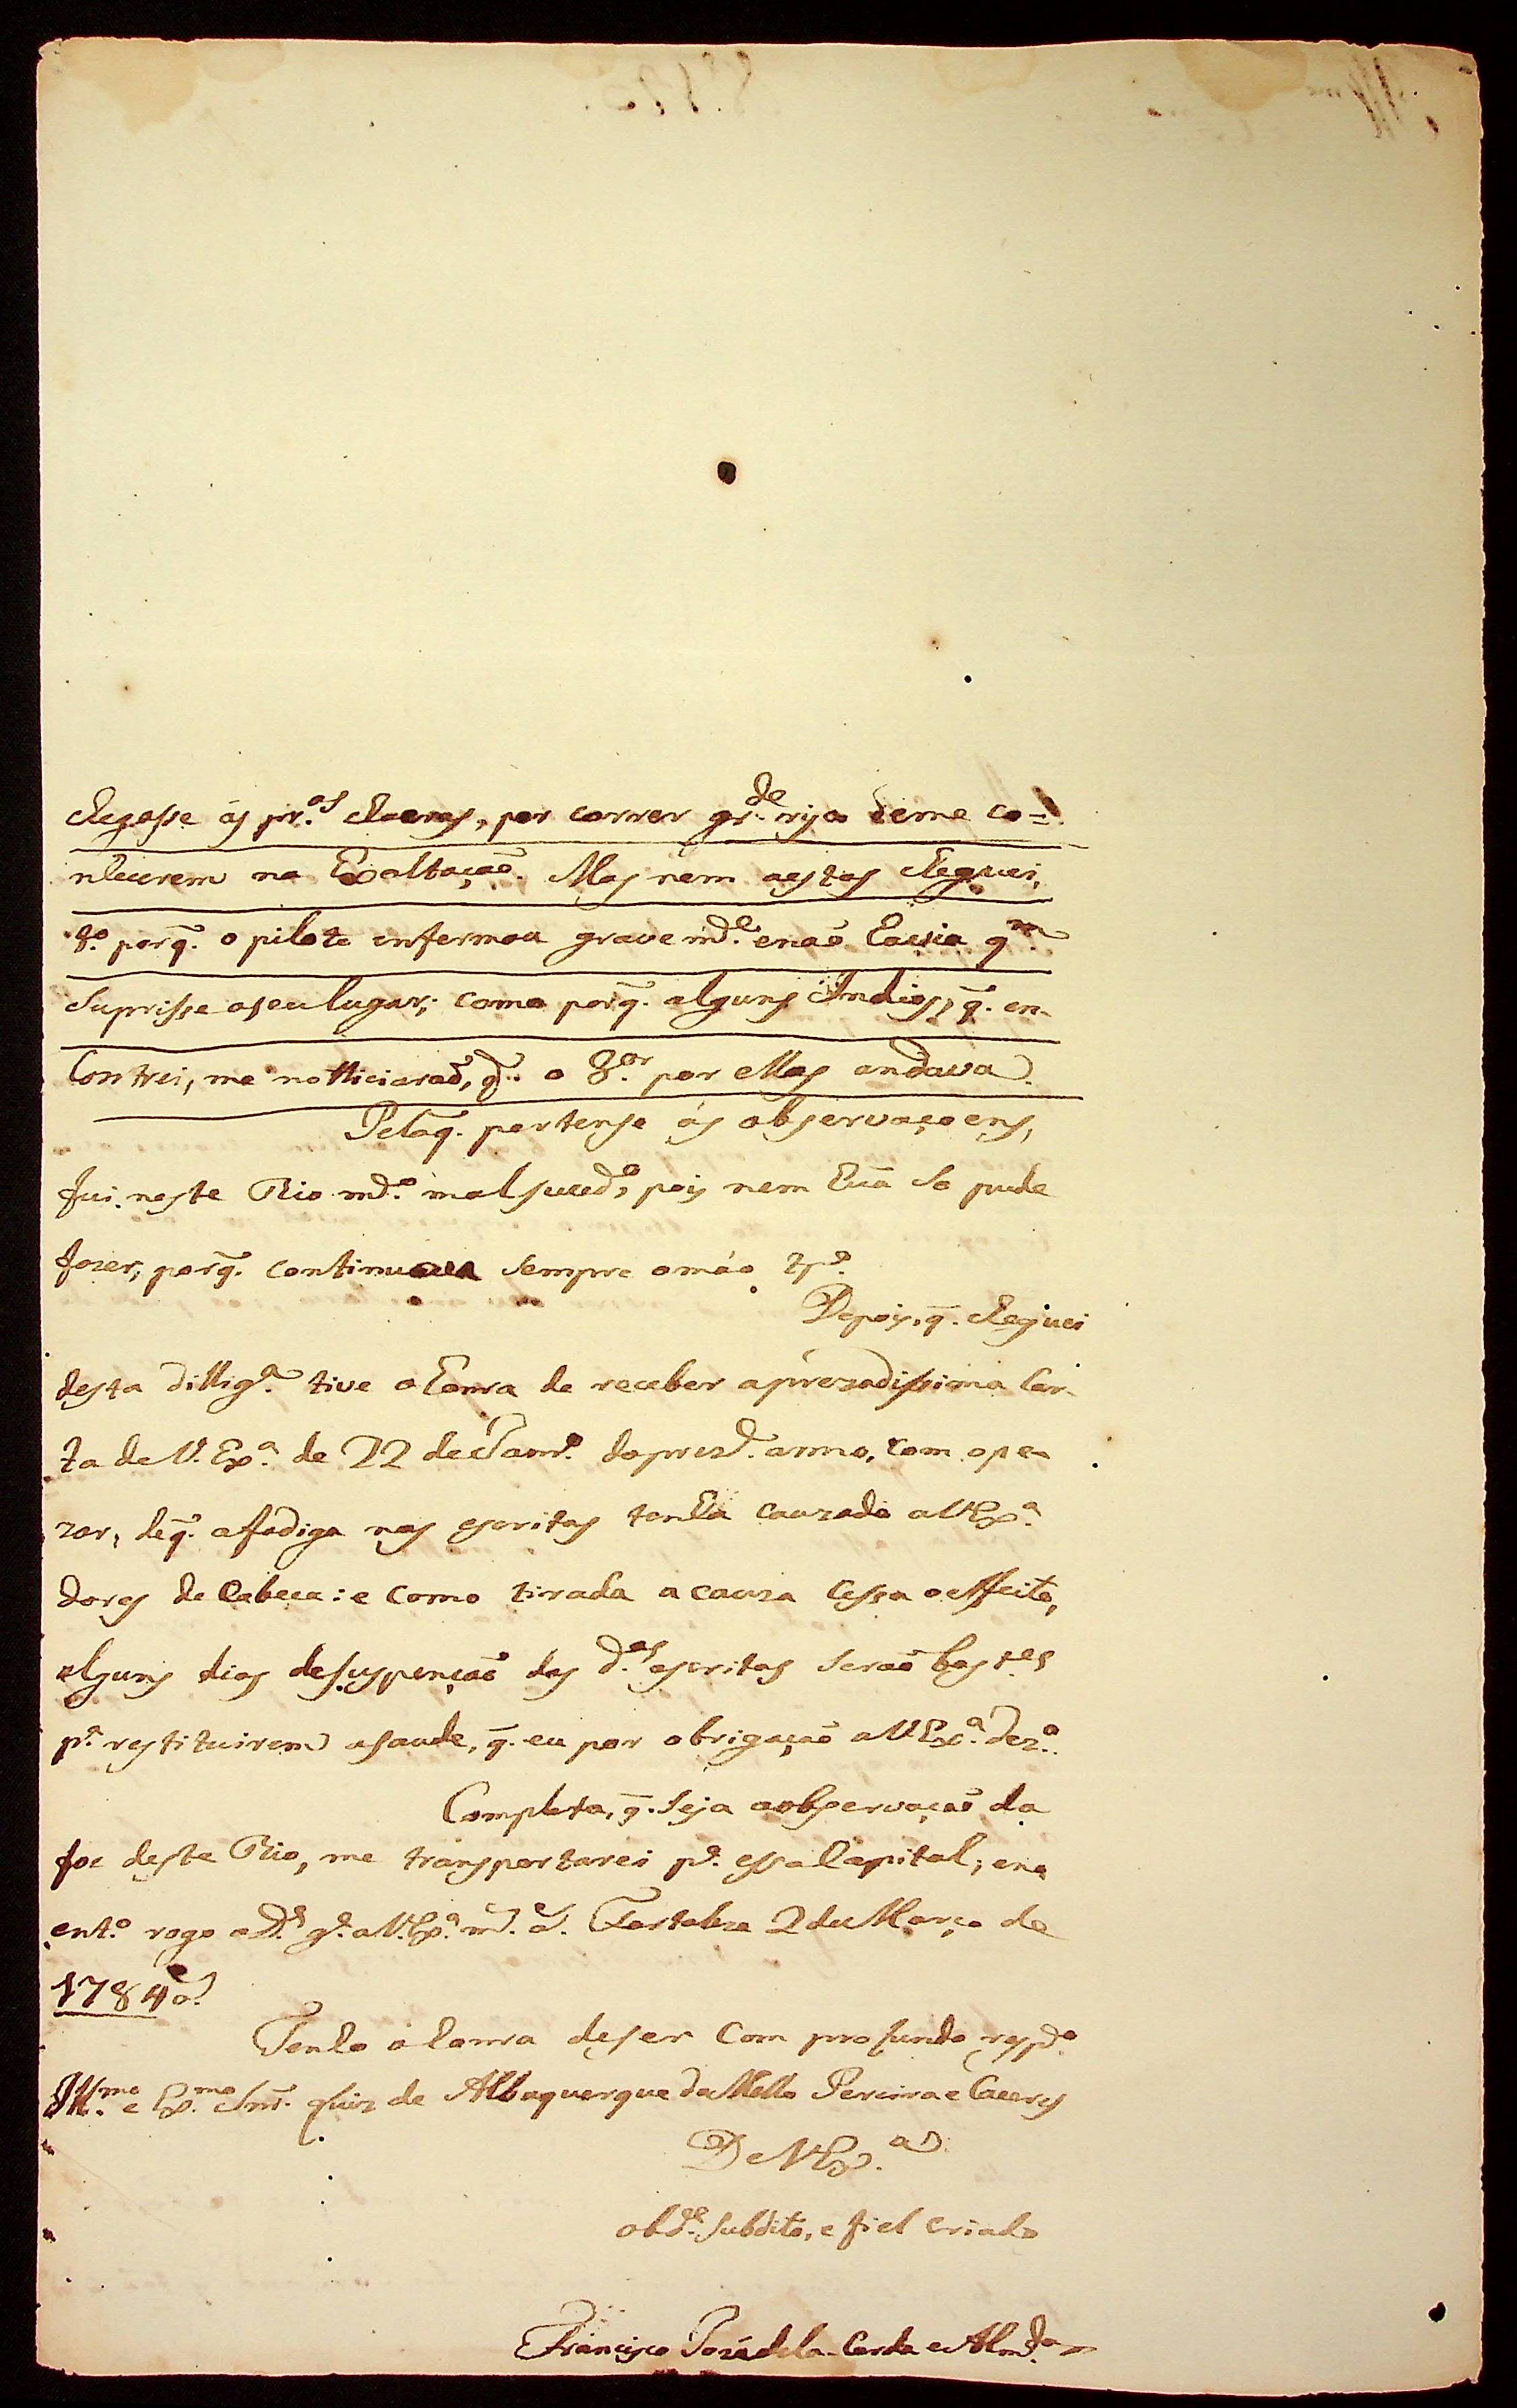 chegasse ás pr.as choeras, por correr gr.de risco deme co=
nhecerem na Exaltação. Mas nem aestas cheguei,
porq̃. o piloto enfermou gravemd.e enaõ havia q.m
suprisse oseu lugar; como porq̃. alguns Indios, q̃. en-
contrei, me notticiaraõ, q̃. o g.or por Mas andava.
Peloq̃. pertense ás observaçoens,
fui neste Rio md.o mal suced.o, pois nem huã só pude
fazer, porq̃. continuava sempre omáo tp.o
Depois, q̃. cheguei
desta dillig.a tive a honra de receber aprezadissima Car-
ta de V. Ex.a de 22 de Janr.o do prez.e anno, com ope-
zar, deq̃. afadiga nas escritas tenha cauzado aVEx.a
dores de Cabeca: e como tirada a cauza cessa oeffeito,
alguns dias desuspençaõ das d.as escritas seraõ bast.es
p.a restituirem asaude, q̃. eu por obrigaçaõ aVEx.a dez.o
Completa, q̃. seja aobservaçaõ da
foz deste Rio, me transportarei p.a essa Capital; eno
ent.o rogo aD.s g.e aV. Ex.a m.s a.s Fortaleza 2 de Março de
1784 a.
Tenho ahonra deser com profundo resp.o
Ill.mo e Ex.mo Snr. Luiz de Albuquerque de Mello Pereira e Caceres
De VEx.a
obd.e subdito, e fiel criado
Francisco Jozé de la-Cerda e Almd.a